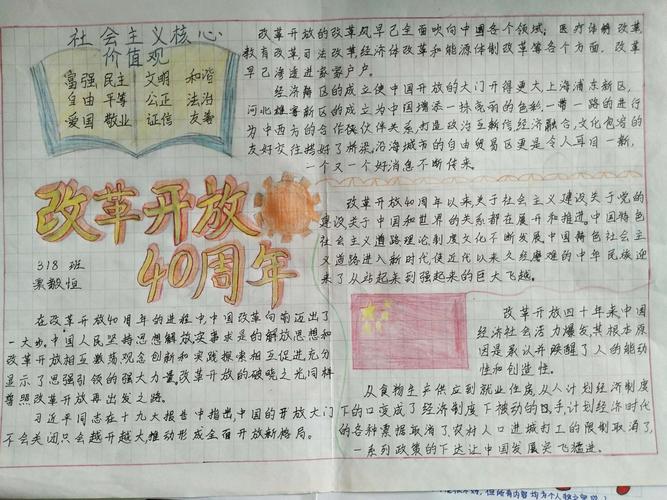 社会主义核心
价值观
富强 民主 文明 和谐
自由 平等 公正 法治
爱国 敬业 证信 友善
改革开放的改革风早已全面吹向中国各个领域；医疗体解改革,
教育改革司法改革,经济体改革和能源体制改革等各个方面.改革
早已渗透进家家户户。
经济特区的成立使中国开放的大门开得更大,上海浦东新区,
河北雄安新区的成立为中国增添一抹亮丽的色彩,一带一路的进行
为中西方的合作伙伴关系,打造政治互新信,经济融合,文化包容的
友好交往搭好了桥梁.沿海城市的自由贸易区更是令人耳目一新,
一个又一个好消息不断传来.
改革开放
40周年
318 班
改革开放40周年以来,关于社会主义建设关于党的
建设关于中国和世界的关系都在展开和推进,中国特色
社会主义道路理论制度文化不断发展,中国特色社会主
义道路进入新时代使近代以来久经磨难的中华民族迎
来了从站起来到强起来的巨大飞越。
在改革开放40周年的进程中,中国改革向前迈出了
一大步,中国人民坚持思想解放实事求是的解放思想和
改革开放相互激荡观念创新和实践探索相互促进,充分
显示了思强引领的强大力量,改革开放的破晓之光同样
普照改革开放再出发之路.
习近平同志在十九大报告中指出,中国的开放大门
不会关闭,只会越开越大,推动形成全面开放新格局。
改革开放四十年来中国
经济社会活力爆发,其根本原
因是承认并唤醒了人的能动
性和创造性。
从食物生产供应到就业住房,从人计划经济制度
下的口变成了经济制度下被动的口,手计划经济时代
的各种票据取消了,农村人口进城打工的限制取消了,
一系列政策的下达让中国发展突飞猛进。